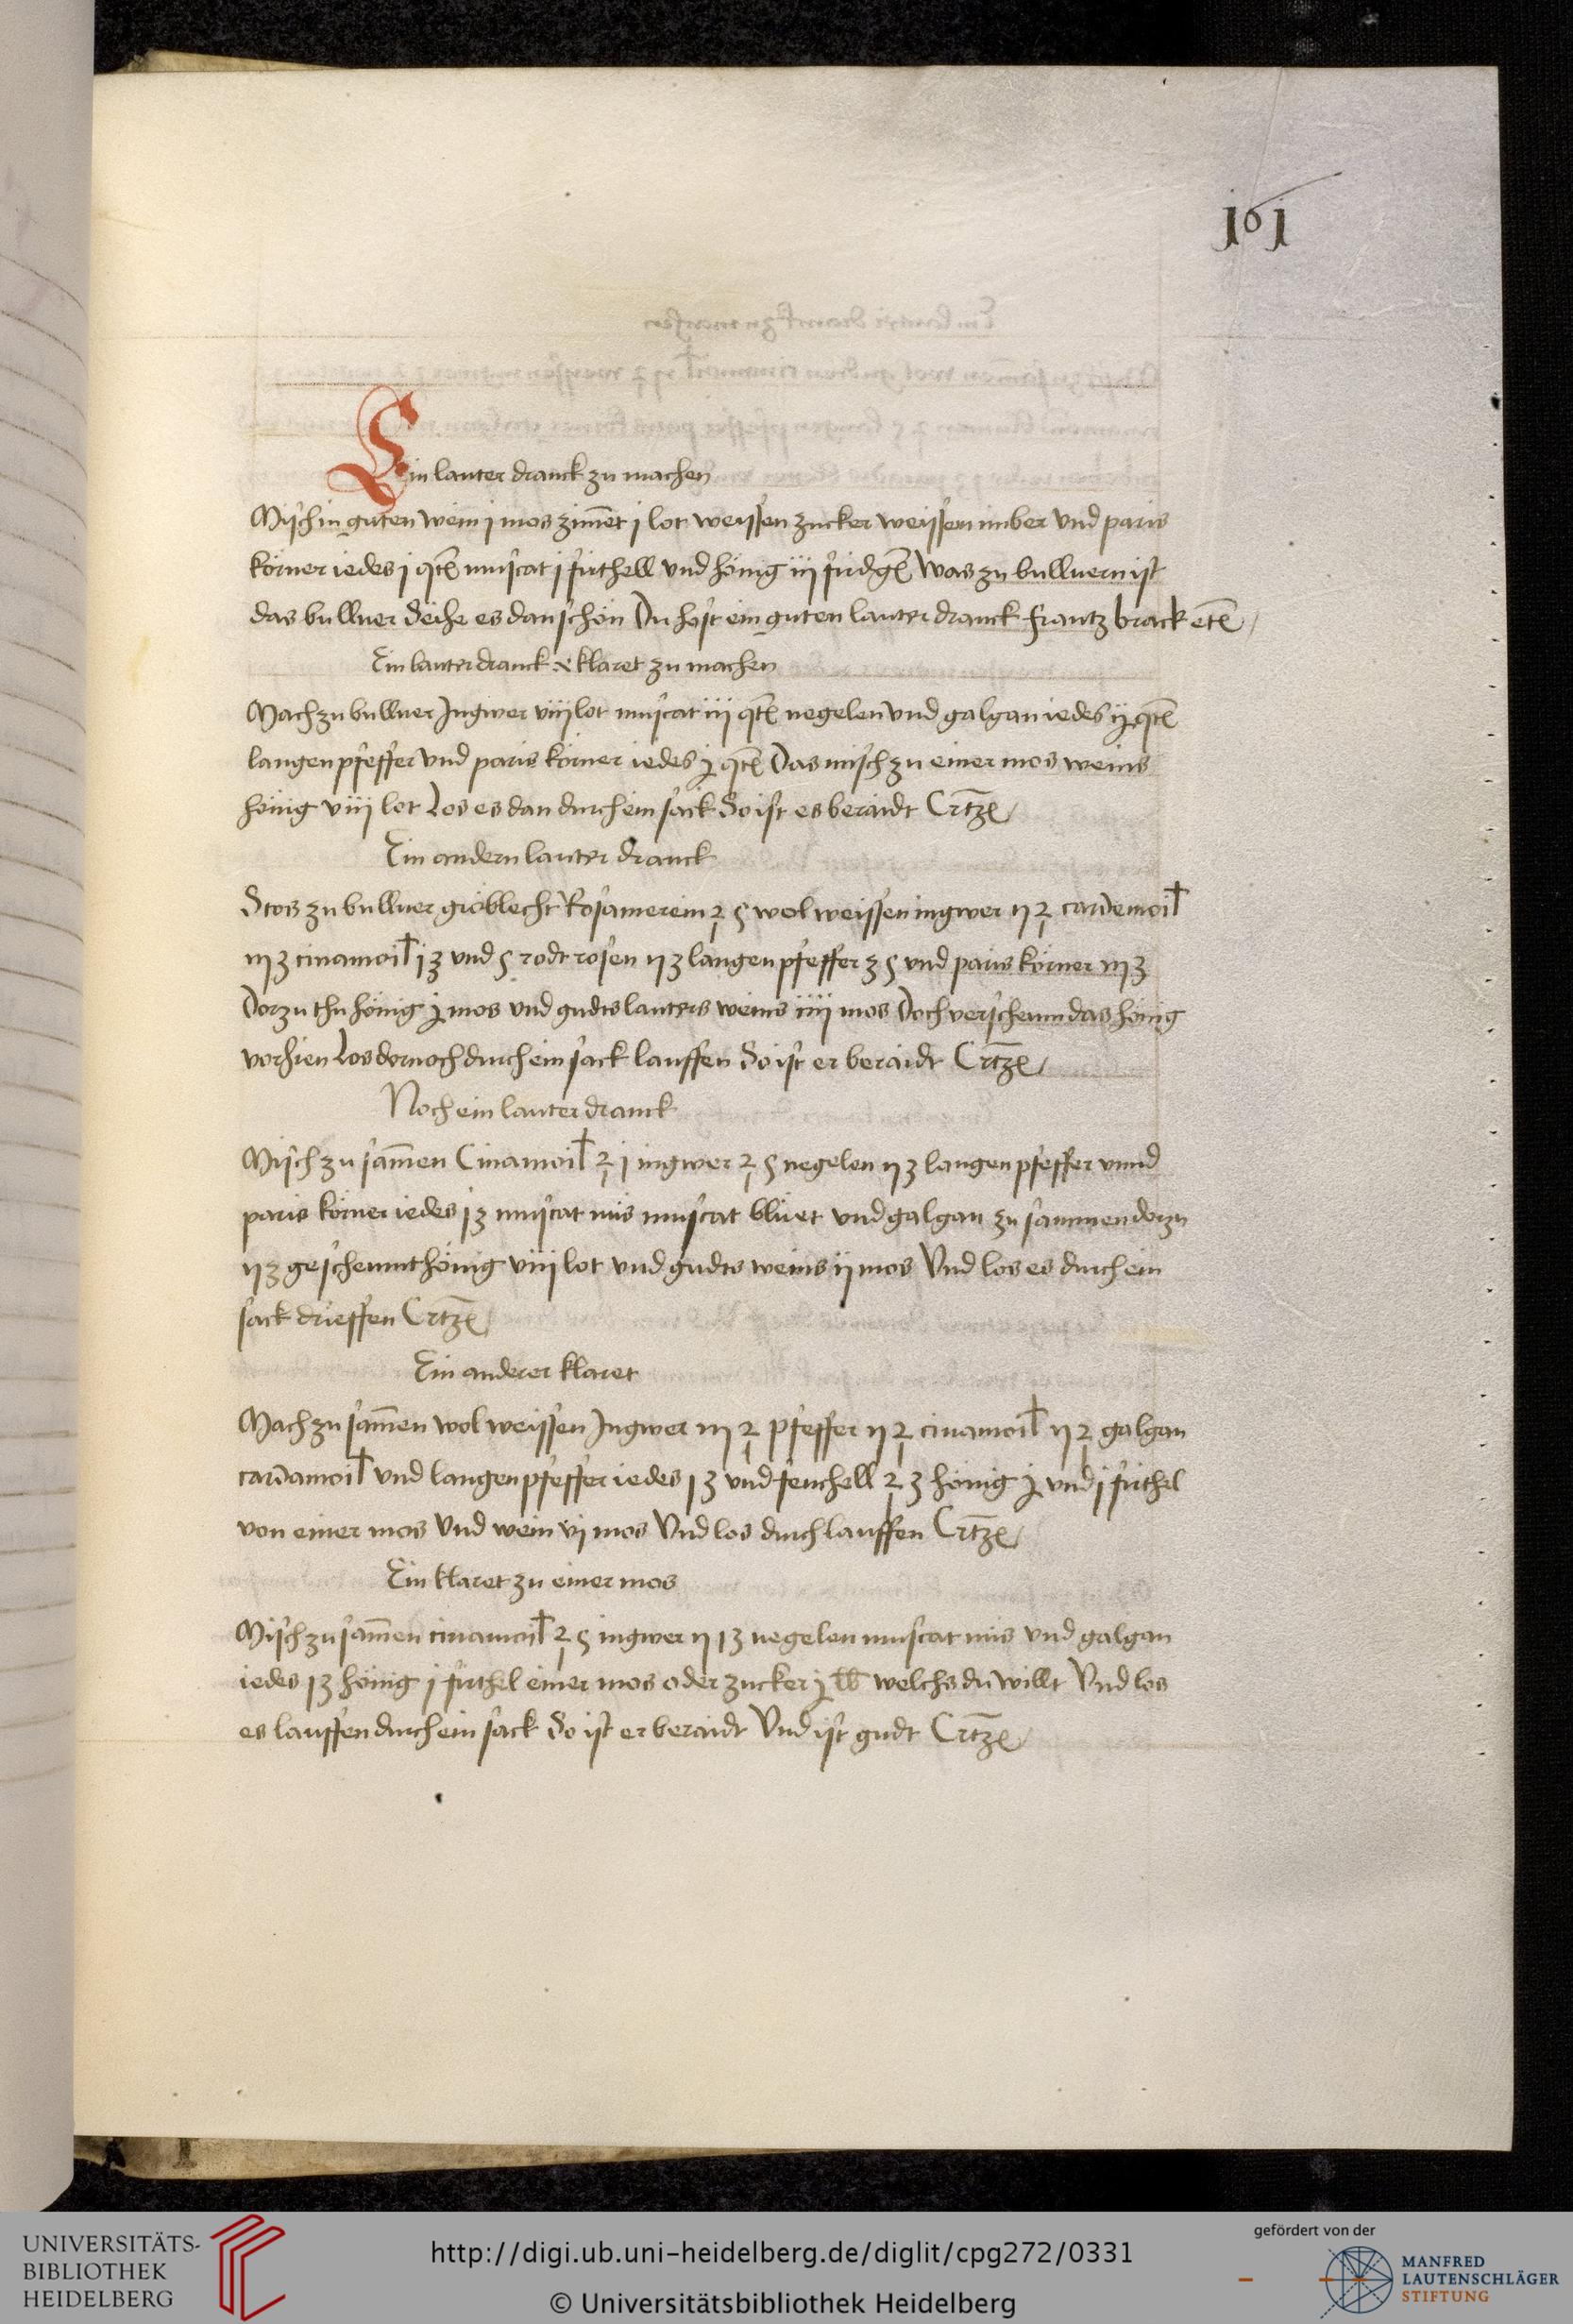 161
Ein lauter dranck zu machen
Misch in guten wein j mos zimet j lot weissen zucker weissen imber vnd paris
körner iedes j qtꝭ muscat j firthell vnd hönig iij firdgꝭ Was zu bulluern ist
das bulluer Seihe es dan schön Du hast ein guten lauter dranck frantz brack etꝭ
Ein lauter dranck klaret zu machen
Mach zu bulluer Ingwer viij lot muscat iij qtꝭ negelen vnd galgan iedes ij qtꝭ
langen pfeffer vnd paris körner iedes j qtꝭ Das misch zu einer mos weins
hönig viij lot Los es dan durch ein sack So ist es beraidt Crtzꝭ
Ein andern lauter dranck
Stos zu bulluer gröblecht Rosamerein ℥ s wol weissen ingwer ij ℥ cardemoil
iij ʒ cinamoil j ʒ vnd s rodt rosen ij ʒ langen pfeffer ʒ s vnd paris körner iij ʒ
Dorzu thu hönig j mos vnd gudts lauters weins iiij mos Doch verscheum das hönig
vorhien Los dornoch durch ein sack lauffen So ist er beraidt Crtzꝭ
Noch ein lauter dranck
Misch zu samen Cinamoil ℥ j ingwer ℥ s negelen ij ʒ langen pfeffer vnnd
paris körner iedes j ʒ muscat nüs muscat blüet vnd galgan zu sammen dorzu
ij ʒ gescheumt hönig viij lot vnd gudts weins ij mos Vnd los es durch ein
sack drieffen Crtzꝭ
Ein anderer klaret
Mach zu samen wol weissen Ingwer iij ℥ pfeffer ij ℥ cinamoil ij ℥ galgan
cardamoil vnd langen pfeffer iedes j ʒ vnd fenchell ℥ ʒ hönig j vnd j firthel
von einer mos Vnd wein vj mos Vnd los durch lauffen Crtzꝭ
Ein klaret zu einer mos
Misch zu samen cinamoil ℥ s ingwer ij j ʒ negelen muscat nüs vnd galgan
iedes j ʒ hönig j firthel einer mos oder zucker j ℔ welchs du willt Vnd los
es lauffen durch ein sack So ist er beraidt Vnd ist gudt Crtzꝭ
UNIVERSITÄTS-
BIBLIOTHEK
HEIDELBERG
http://digi.ub.uni-heidelberg.de/diglit/cpg272/0331
© Universitätsbibliothek Heidelberg
gefördert von der
MANFRED
LAUTENSCHLÄGER
STIFTUNG